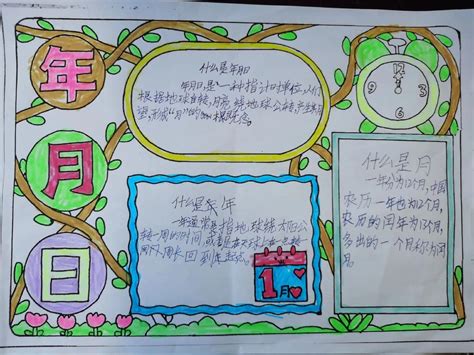 年
月
日
什么是年月日
年月日,是一种指计时单位,人们
根据地球自转,月亮绕地球公转,产生朔
望,形成"月"的概念。
12
9
3
6
什么是月
一年分为12个月,中国
农历一年也为12个月,
农历的闰年为13个月,
多出的一个月称为闰
月。
什么是年
一年通常是指地球绕太阳公
转一周的时间,或者是在
周长回到起点。
1月